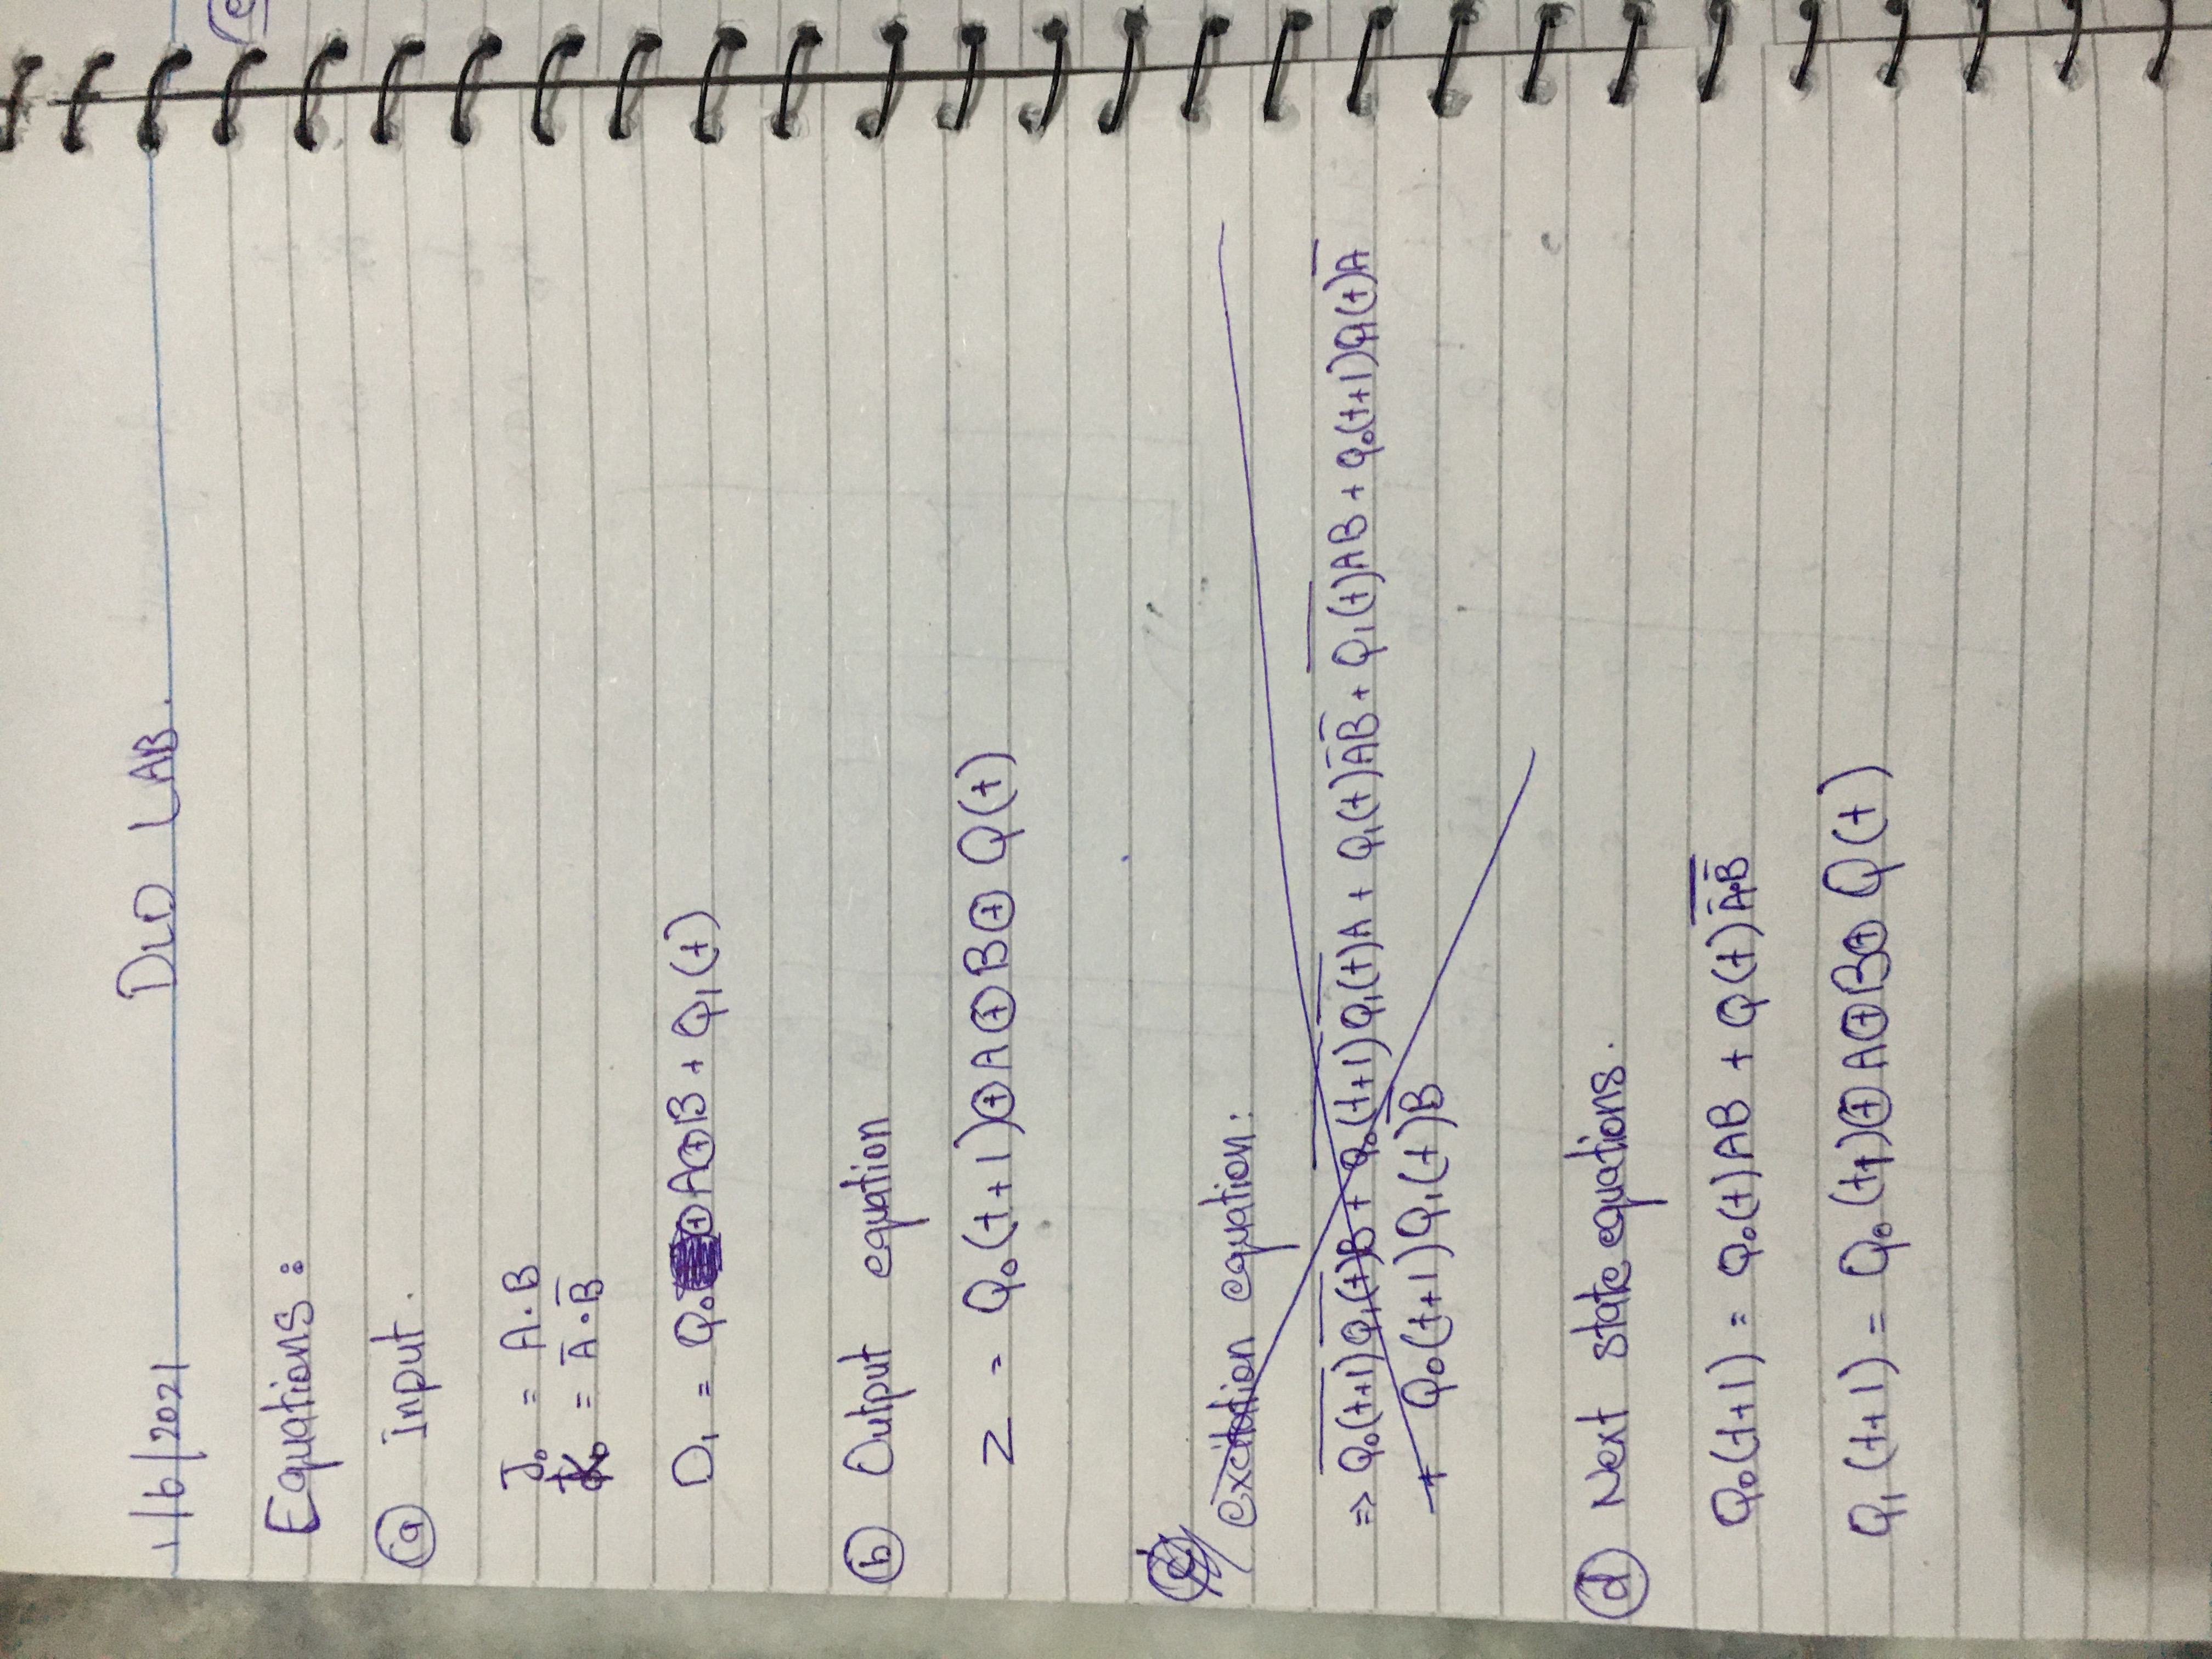 1/6/2021 DLD LAB.
Equations:
ⓐ Input.
J₀ = A·B
K₀ = A̅·B̅
D₁ = Q₀ ⊕ A ⊕ B + Q₁(t)
ⓑ Output equation
Z = Q₀(t+1) ⊕ A ⊕ B ⊕ Q(t)
excitation equation:
⇒ \overline{Q₀(t+1)} \overline{Q₁(t)}B + \overline{Q₀(t+1)} \overline{Q₁(t)}A + Q₁(t)A̅B̅ + \overline{Q₁(t)}AB + Q₀(t+1)Q₁(t)A̅
+ Q₀(t+1)Q₁(t)B̅
ⓓ Next state equations.
Q₀(t+1) = Q₀(t)AB + Q(t)\overline{A̅·B̅}
Q₁(t+1) = Q₀(t) ⊕ A ⊕ B ⊕ Q(t)